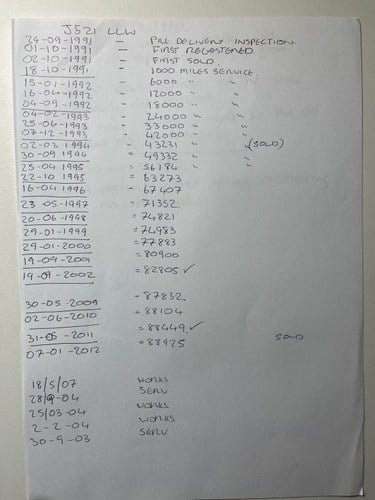 J521 LLW
24-09-1991 - PRE DELIVERY INSPECTION.
01-10-1991 - FIRST REGESTERED
02-10-1991 - FIRST SOLD.
18-10-1991 - 1000 MILES SERVICE.
15-01-1992 - 6000 " "
16-04-1992 - 12000 " "
04-09-1992 - 18000 " "
04-02-1993 - 24000 " "
25-06-1993 - 33000 " "
07-12-1993 - 42000 " "
02-03-1994 - 43231 " (SOLD)
30-09-1994 = 49332 "
25-04-1995 = 56184 "
22-10-1995 = 63273
16-04-1996 - 67407
23-05-1997 - 71352.
20-06-1998 = 74821
29-01-1999 = 74983
29-01-2000 = 77883
19-09-2001 = 80900
19-09-2002 = 82805 ✓
30-05-2009 - 87832.
02-06-2010 = 88104
31-05-2011 = 88449 ✓
07-01-2012 = 88925 SOLD.
18/5/07 WORKS
28/9-04 SERV
25/03-04 WORKS
2-2-04 WORKS
30-9-03 SERV